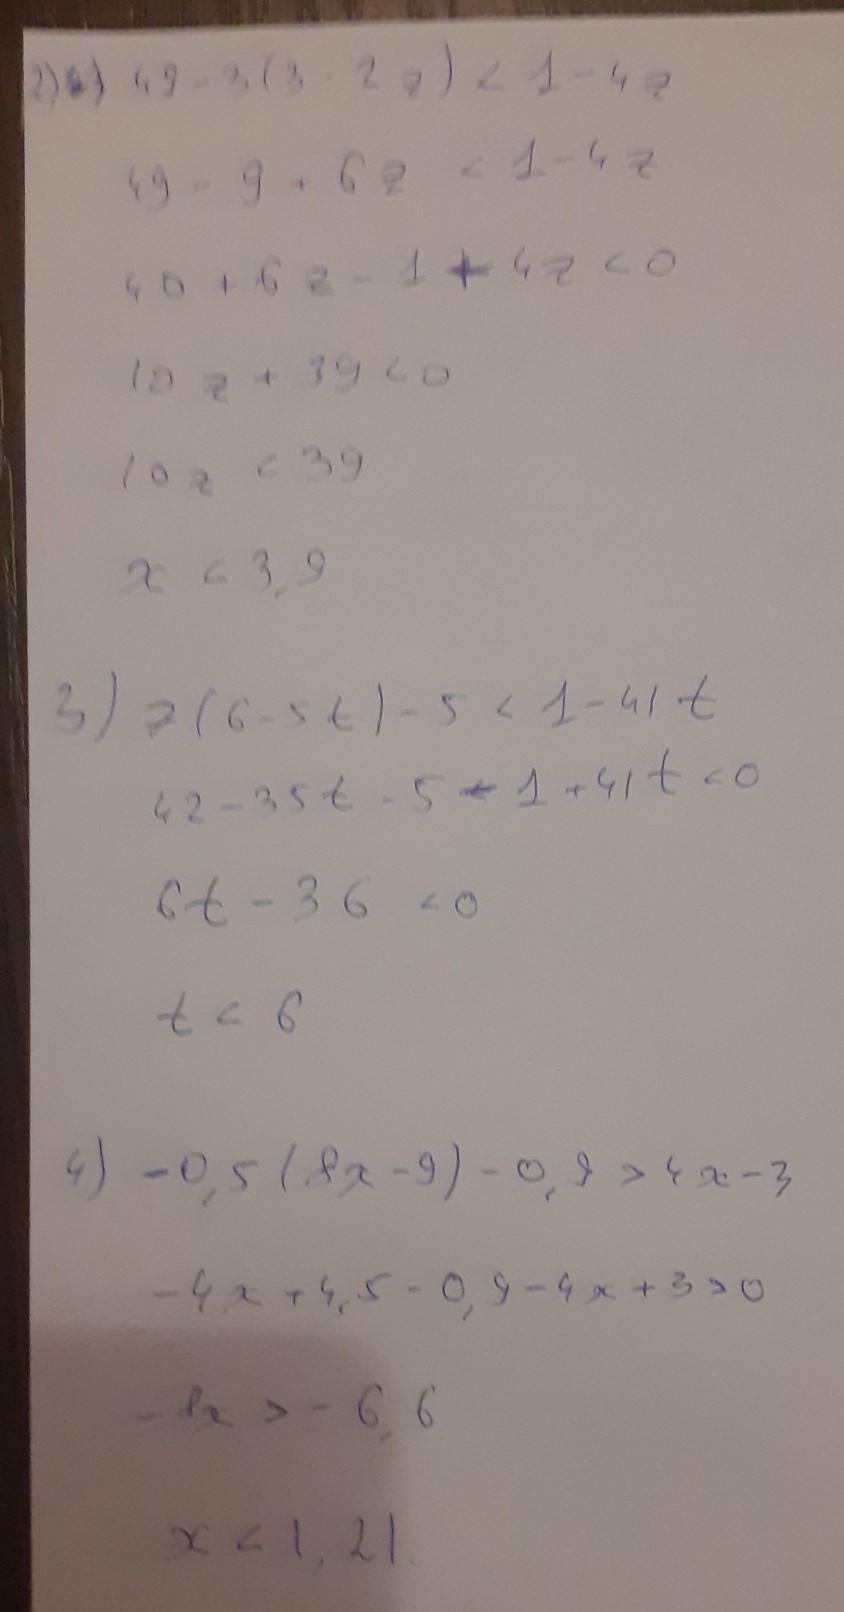 2) 49 - 3(3 - 2z) < 1 - 4z
49 - 9 + 6z < 1 - 4z
40 + 6z - 1 + 4z < 0
10z + 39 < 0
10z < 39
x < 3,9
3) 7(6 - 5t) - 5 < 1 - 41t
42 - 35t - 5 - 1 + 41t < 0
6t - 36 < 0
t < 6
4) -0,5(8x - 9) - 0,9 > 4x - 3
-4x + 4,5 - 0,9 - 4x + 3 > 0
-8x > -6,6
x < 1,21